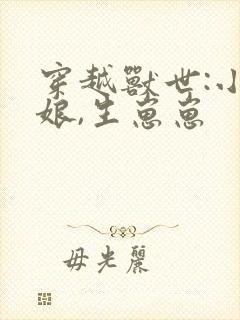 穿越獸世:小
娘,生崽崽
毋光麗